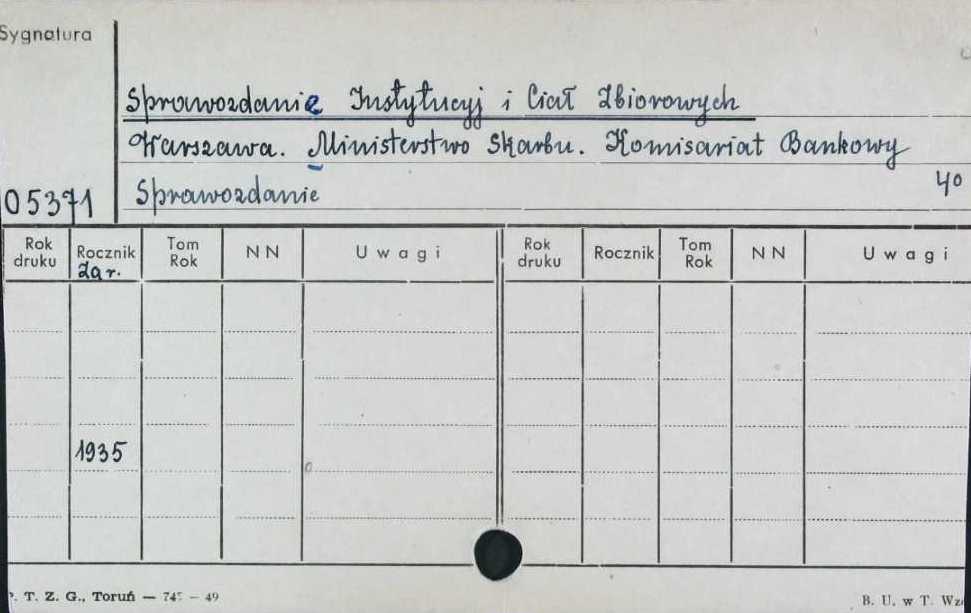 Sygnatura
Sprawozdanie Instytucyj i Ciał Zbiorowych
Warszawa. Ministerstwo Skarbu. Komisariat Bankowy
05371 Sprawozdanie 4o
Rok druku Rocznik Tom Rok NN Uwagi Rok druku Rocznik Tom Rok NN Uwagi
za r.
1935
T. Z. G., Toruń — 49 B. U. w T.